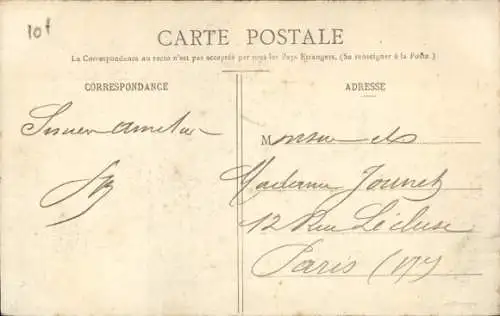 10f
CARTE POSTALE
La Correspondance au recto n'est pas acceptée par tous les Pays Étrangers. (Se renseigner à la Poste.)
CORRESPONDANCE
ADRESSE
Monsieur et
Madame Journet
12 Rue Lécluse
Paris (17)